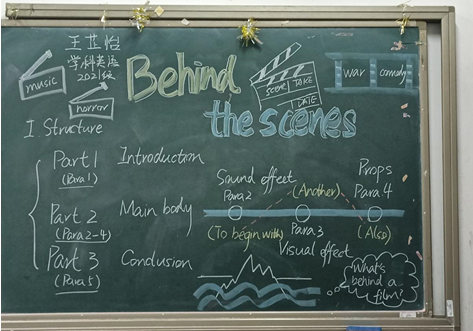 王芷怡
学科英语
2021级
music
horror
Behind
the scenes
SCENE TAKE
DATE
war comedy
I Structure
Part 1 Introduction
(Para 1)
Part 2 Main body
(Para 2-4)
Part 3 Conclusion
(Para 5)
Sound effect
Para 2
(To begin with)
(Another)
Para 3
Visual effect
Props
Para 4
(Also)
What's
behind a
film?